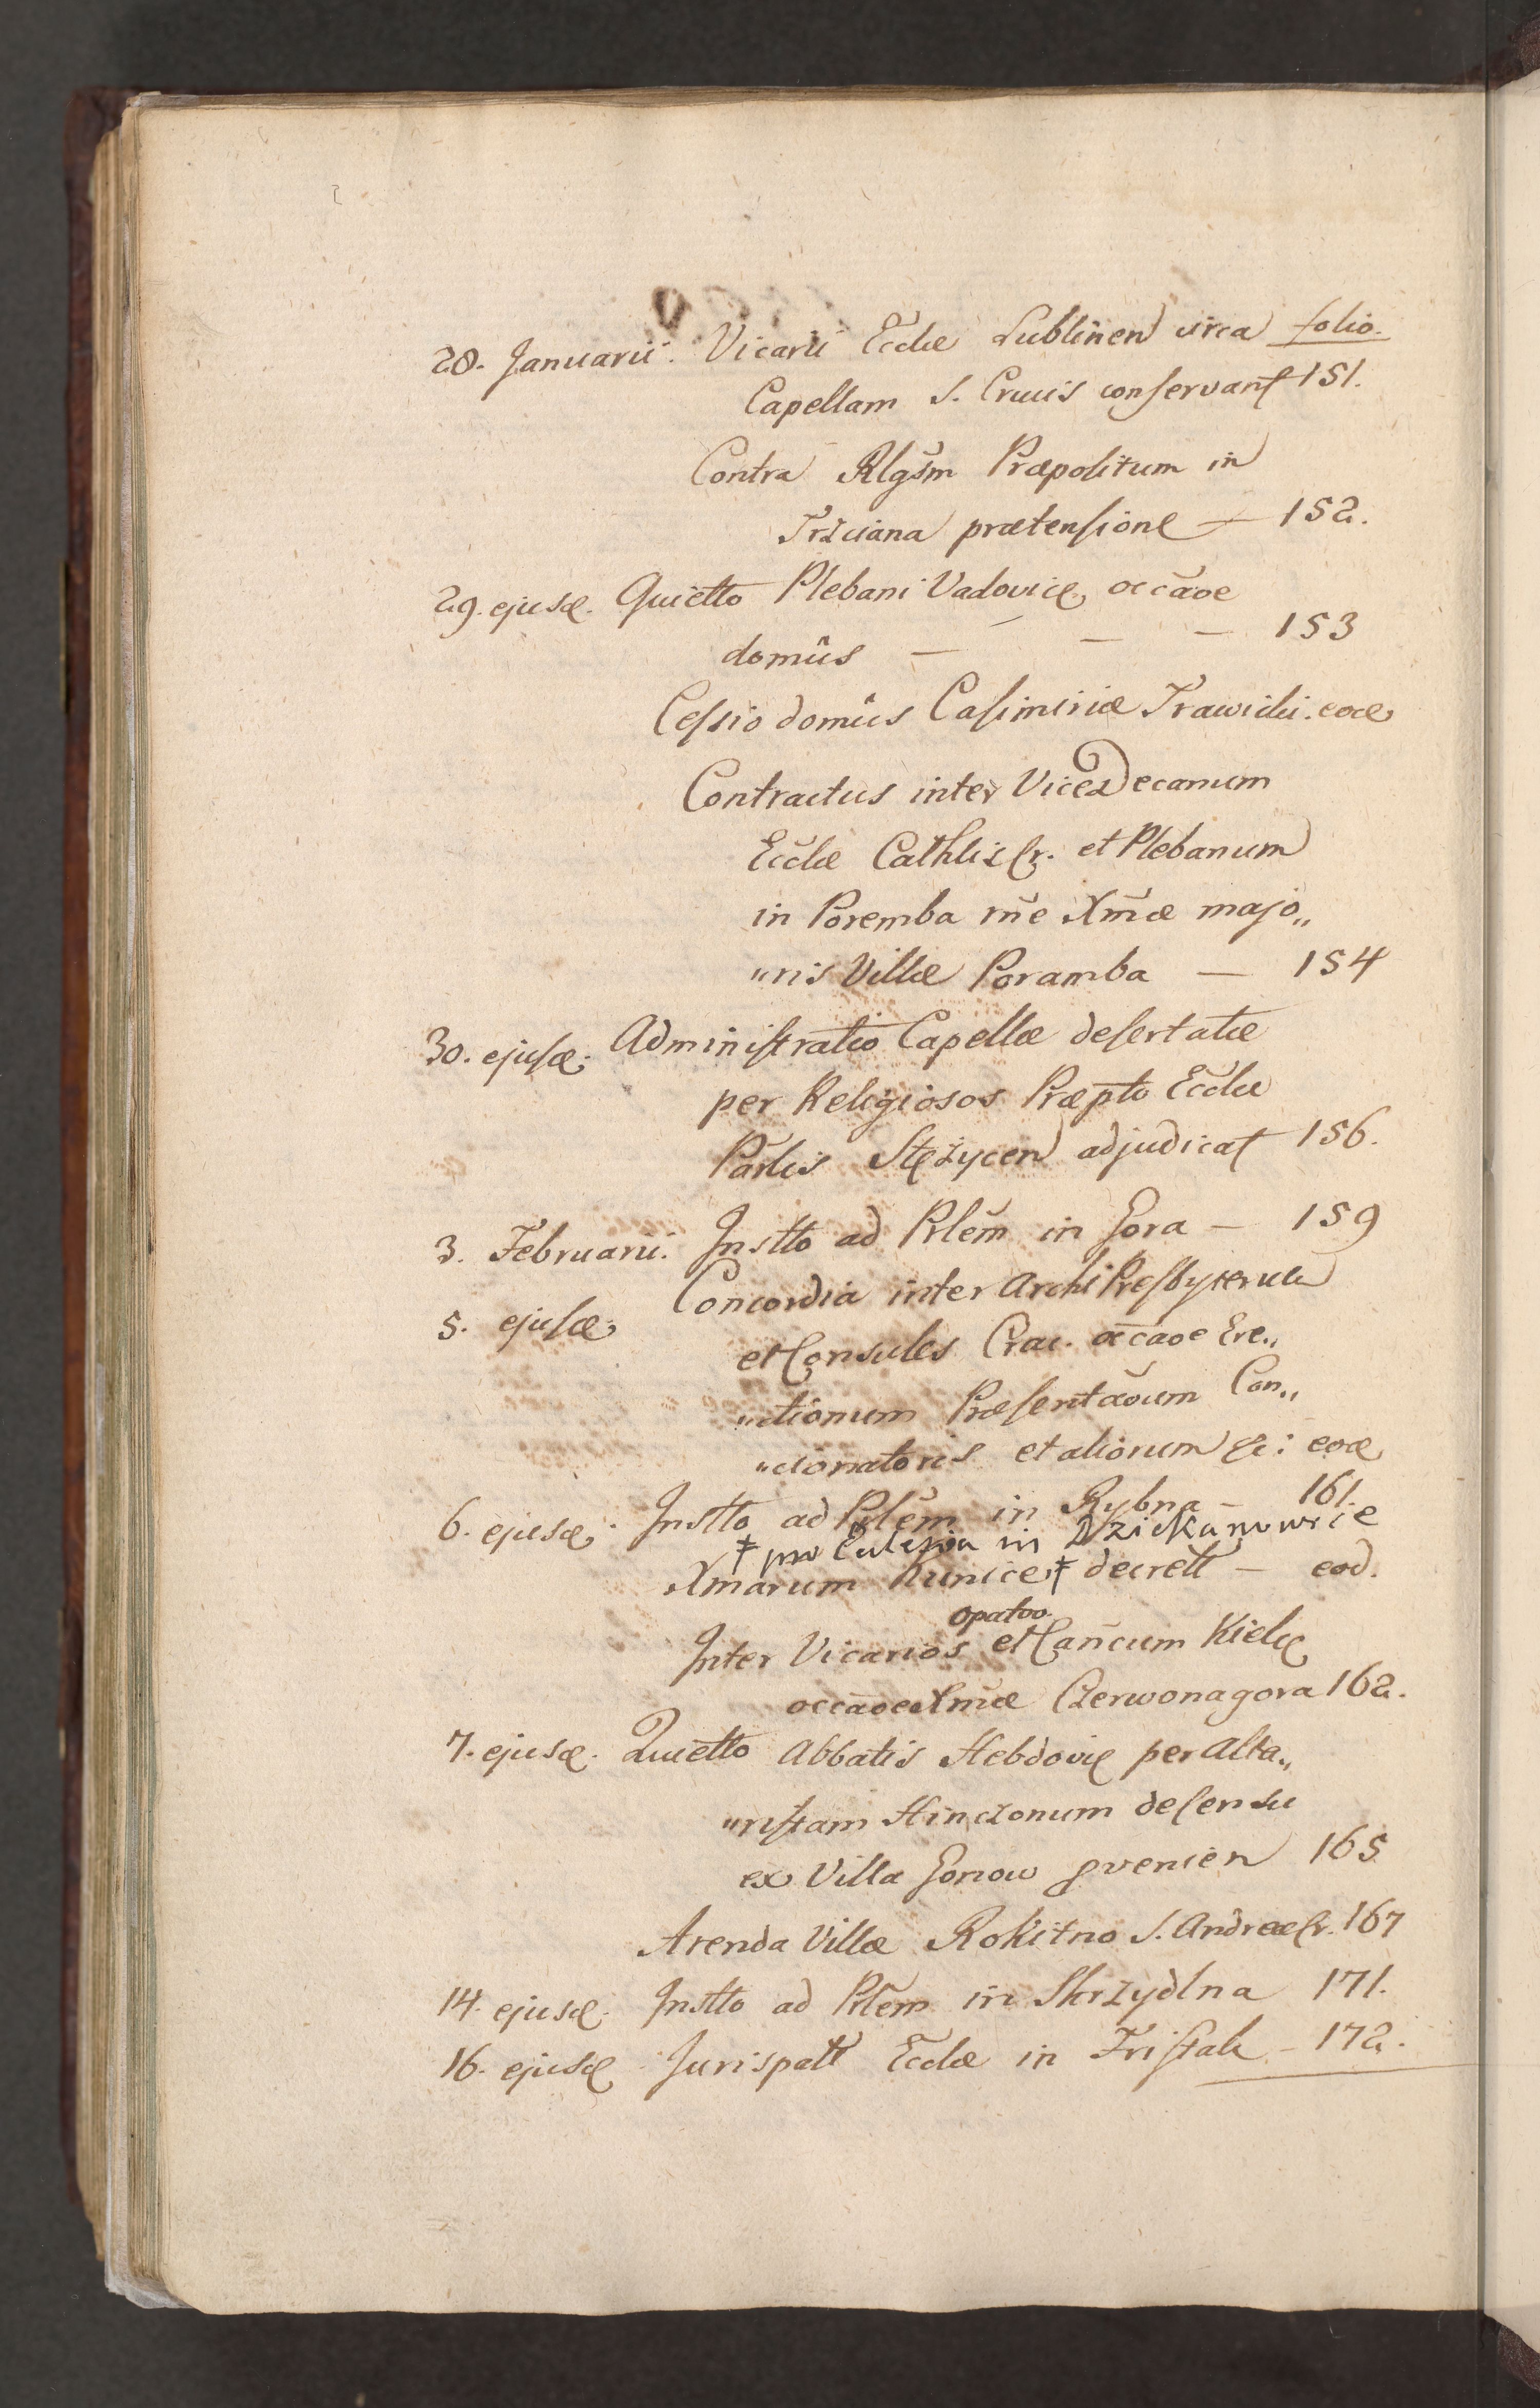 28. Januarii. Vicarii Ecclae Lublinen circa folio.
Capellam S. Crucis conservant 151.
Contra Rlgsm Praepositum in
Trzciana praetensione — 152.
29. ejusd. Quietto Plebani Vadovic. occaoe
domûs — — — 153
Cessio domûs Casimiriae Trawicki. eod
Contractus inter Vice Decanum
Ecclae Cathlis Cr. et Plebanum
in Poremba rne Xmae majo„
„ris Villae Poramba — 154
30. ejusd. Administratio Capellae desertatae
per Religiosos Praepto Ecclae
Parlis Stężycen adjudicat 156.
3. Februarii. Instto ad Plem in Gora — 159
5. ejusd. Concordia inter ArchiPresbyterum
et Consules Crac. occaoe Ere„
„ctionum Praesentaoum Con„
„cionatoris et aliorum &c: eod
6. ejusd. Instto ad Plem in Rybna — 161.
‡ pro Ecclesia in Dziekanowice
Xmarum Kunice ‡ decrett — eod.
opatoo.
Inter Vicarios et Cancum Kielc
occaoe Xmae Czerwonagora 162.
7. ejusd. Quietto Abbatis Hebdovic per Alta„
„ristam Hinczonum de censu
ex Villa Gonow pvenien 165
Arenda Villae Rokitno S. Andreae Cr. 167
14. ejusd. Instto ad Plem in Skrzydlna 171.
16. ejusd. Jurispatt Ecclae in Fristak — 172.